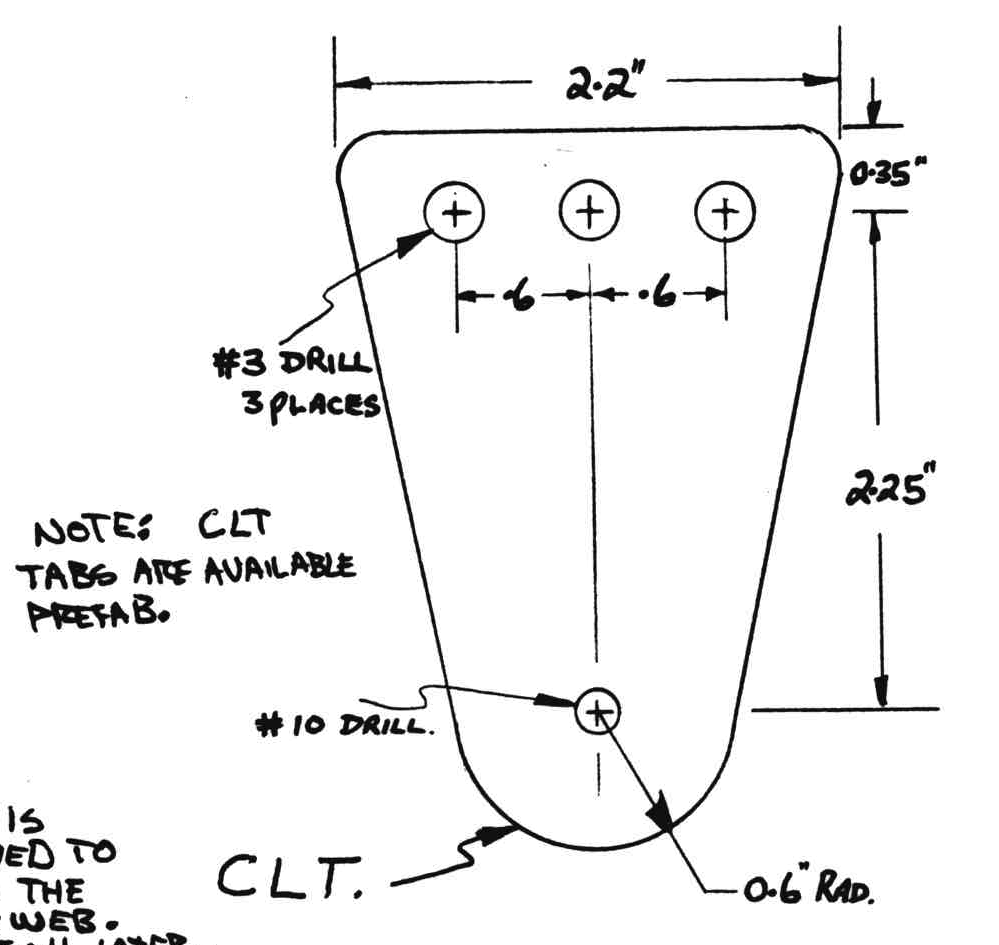 2.2"
0.35"
.6 .6
#3 DRILL
3 PLACES
2.25"
NOTE: CLT
TABS ARE AVAILABLE
PREFAB.
#10 DRILL.
IS
TO
THE
WEB.
CLT.
0.6" RAD.